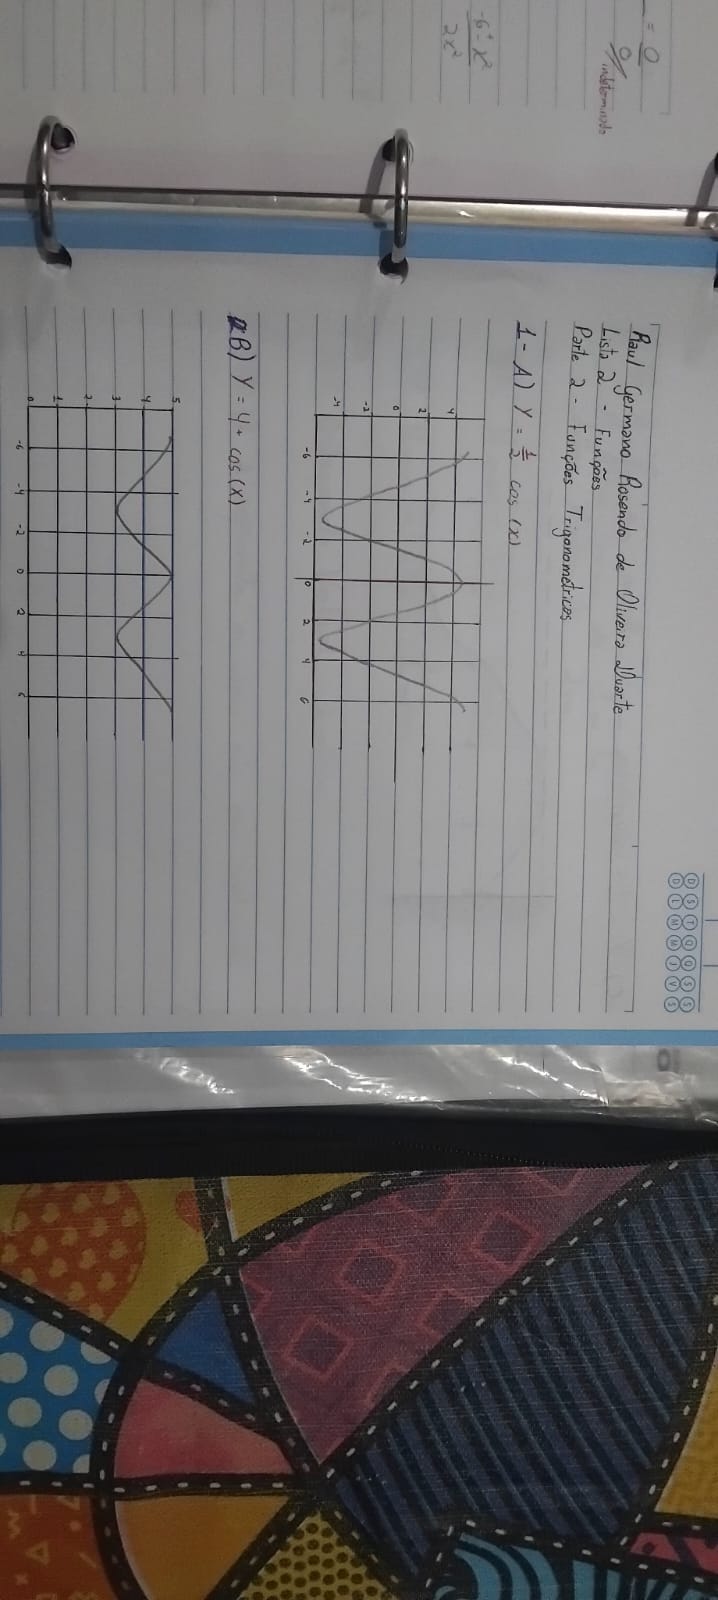 = 0/0
indeterminado
-6+x²
2x²
D S T Q Q S S
D L M M J V S
Raul Germano Rosendo de Oliveira Duarte
Lista 2 - Funções
Parte 2 - Funções Trigonométricas
1 - A) Y = 1/2 cos (x)
4
2
0
-2
-4
-6 -4 -2 0 2 4 6
B) Y = 4 + cos(x)
5
4
3
2
1
0
-6 -4 -2 0 2 4 6